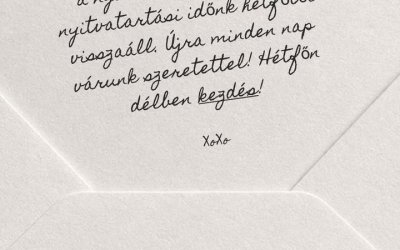 nyitvatartási időnk hétfőtől
visszaáll. Újra minden nap
várunk szeretettel! Hétfőn
délben kezdés!
XoXo